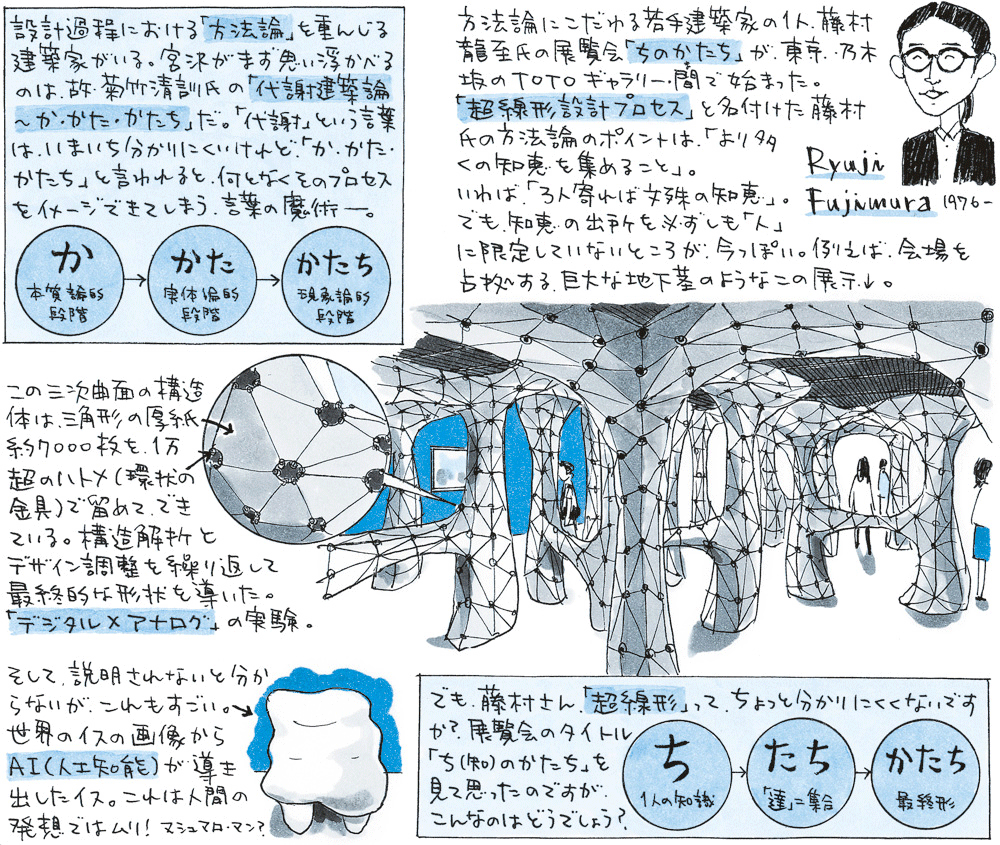 設計過程における「方法論」を重んじる
建築家がいる。宮沢がまず思い浮かべる
のは、故・菊竹清訓氏の「代謝建築論
〜か・かた・かたち」だ。「代謝」という言葉
は、いまいち分かりにくいけれど、「か・かた・
かたち」と言われると、何となくそのプロセス
をイメージできてしまう、言葉の魔術―。
か
本質論的
段階
かた
実体論的
段階
かたち
現象論的
段階
方法論にこだわる若手建築家の1人、藤村
龍至氏の展覧会「ちのかたち」が、東京・乃木
坂のTOTOギャラリー・間で始まった。
「超線形設計プロセス」と名付けた藤村
氏の方法論のポイントは、「より多
くの知恵を集めること」。
いわば、「3人寄れば文殊の知恵」。
でも、知恵の出所を必ずしも「人」
に限定していないところが、今っぽい。例えば、会場を
占拠する、巨大な地下茎のようなこの展示↓。
Ryuji
Fujimura 1976-
この三次曲面の構造
体は、三角形の厚紙
約7000枚を、1万
超のハトメ(環状の
金具)で留めて、でき
ている。構造解析と
デザイン調整を繰り返して
最終的な形状を導いた。
「デジタル×アナログ」の実験。
そして、説明されないと分か
らないが、これもすごい。
世界のイスの画像から
AI(人工知能)が導き
出したイス。これは人間の
発想ではムリ! マシュマロ・マン?
でも、藤村さん、「超線形」って、ちょっと分かりにくくないです
か? 展覧会のタイトル
「ち(知)のかたち」を
見て思ったのですが、
こんなのはどうでしょう?
ち
1人の知識
たち
「達」=集合
かたち
最終形